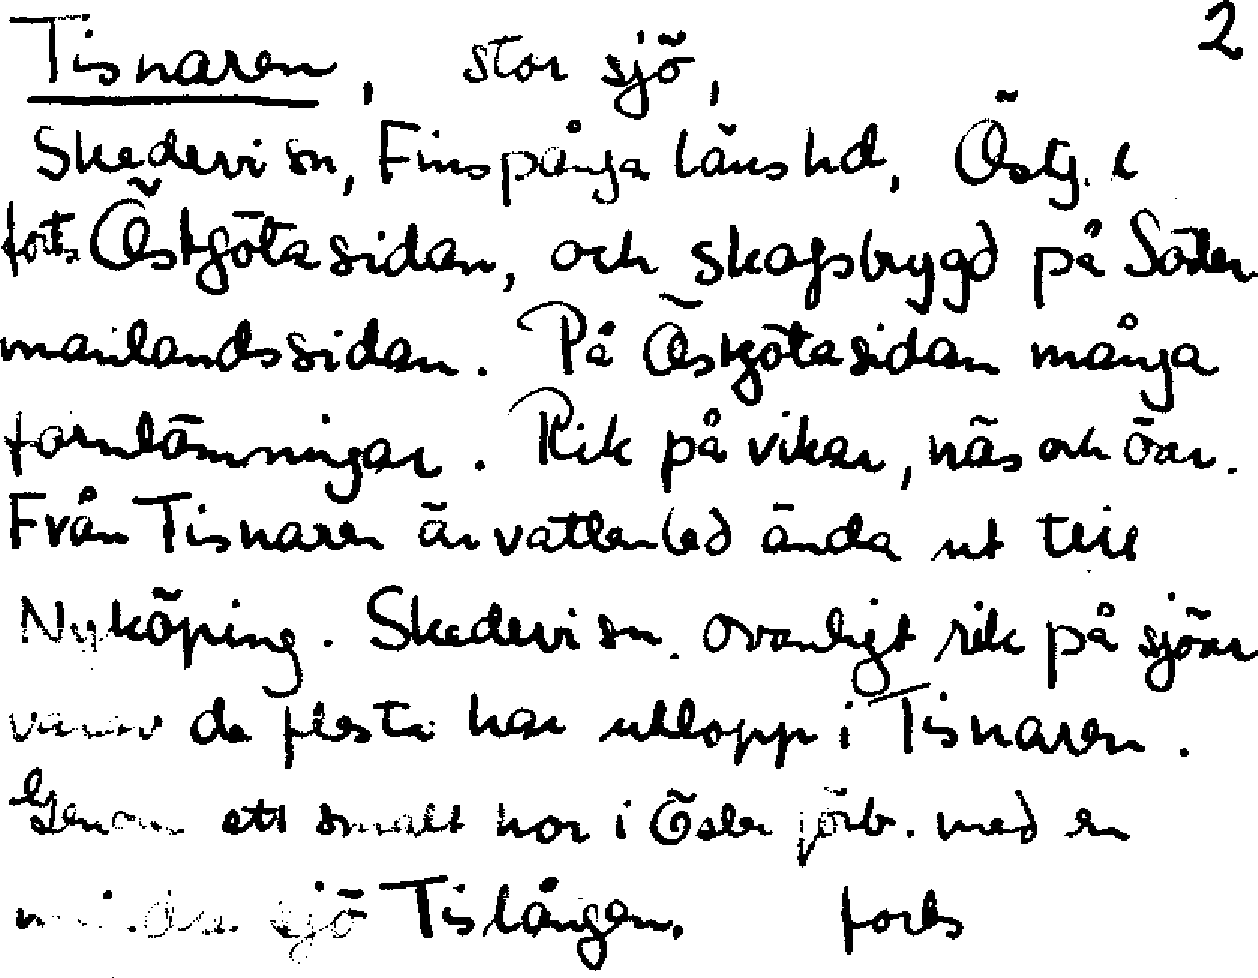 Tisnaren, stor sjö, 2
Skedevi sn, Finspånga läns hd, Östg. l
forts Östgötasidan, och skogsbygd på Söder
manlandssidan. På Östgötasidan många
fornlämningar. Rik på vikar, näs och öar.
Från Tisnaren är vattenled ända ut till
Nyköping. Skedevi sn. ovanligt rik på sjöar
varav de flesta har utlopp i Tisnaren.
Genom ett smalt hor i Öster förb. med en
mindre sjö Tislången. forts